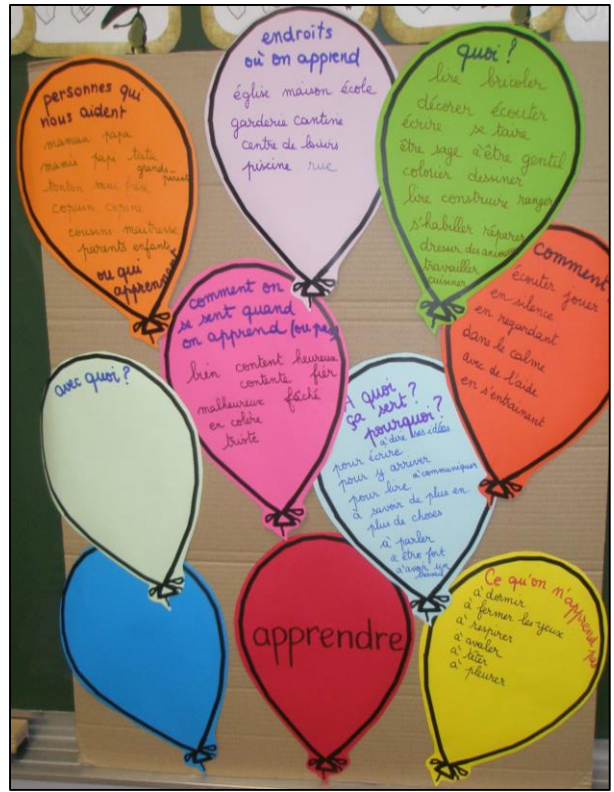 personnes qui
nous aident
maman papa
mamie papi tata
grands-parents
tonton sœur frère
copain copine
cousins maitresse
parents enfants
ou qui
apprennent
endroits
où on apprend
église maison école
garderie cantine
centre de loisirs
piscine rue
quoi ?
lire bricoler
décorer écouter
écrire se taire
être sage à être gentil
colorier dessiner
lire construire ranger
s'habiller réparer
dresser des animaux
travailler
cuisiner
comment
écouter jouer
en silence
en regardant
dans le calme
avec de l'aide
en s'entrainant
comment on
se sent quand
on apprend (ou pas)
bien content heureux
contente fier
malheureux fâché
en colère
triste
avec quoi ?
A quoi
ça sert ?
pourquoi ?
à dire ses idées
pour écrire
pour y arriver
à communiquer
pour lire
à savoir de plus en
plus de choses
à parler
à être fort
à avoir un
travail
apprendre
Ce qu'on n'apprend pas
à dormir
à fermer les yeux
à respirer
à avaler
à téter
à pleurer